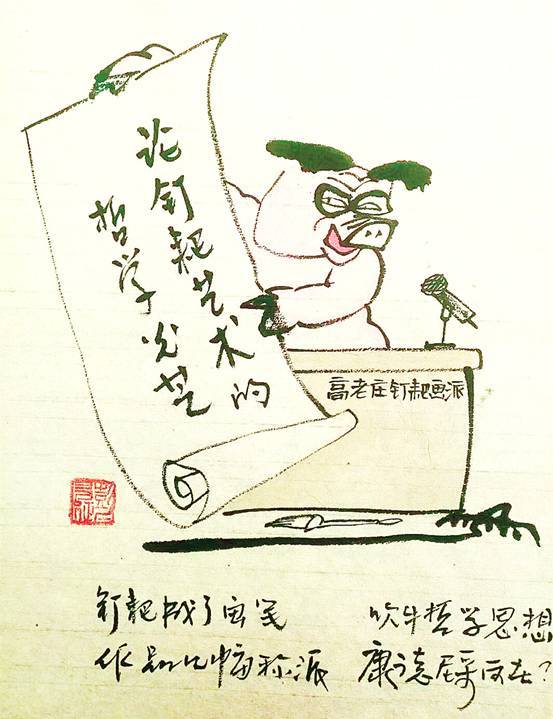 论钉耙艺术的
哲学光芒
高老庄钉耙画派
钉耙成了画笔
作品几幅称派
吹牛哲学思想
康德尼采何在?